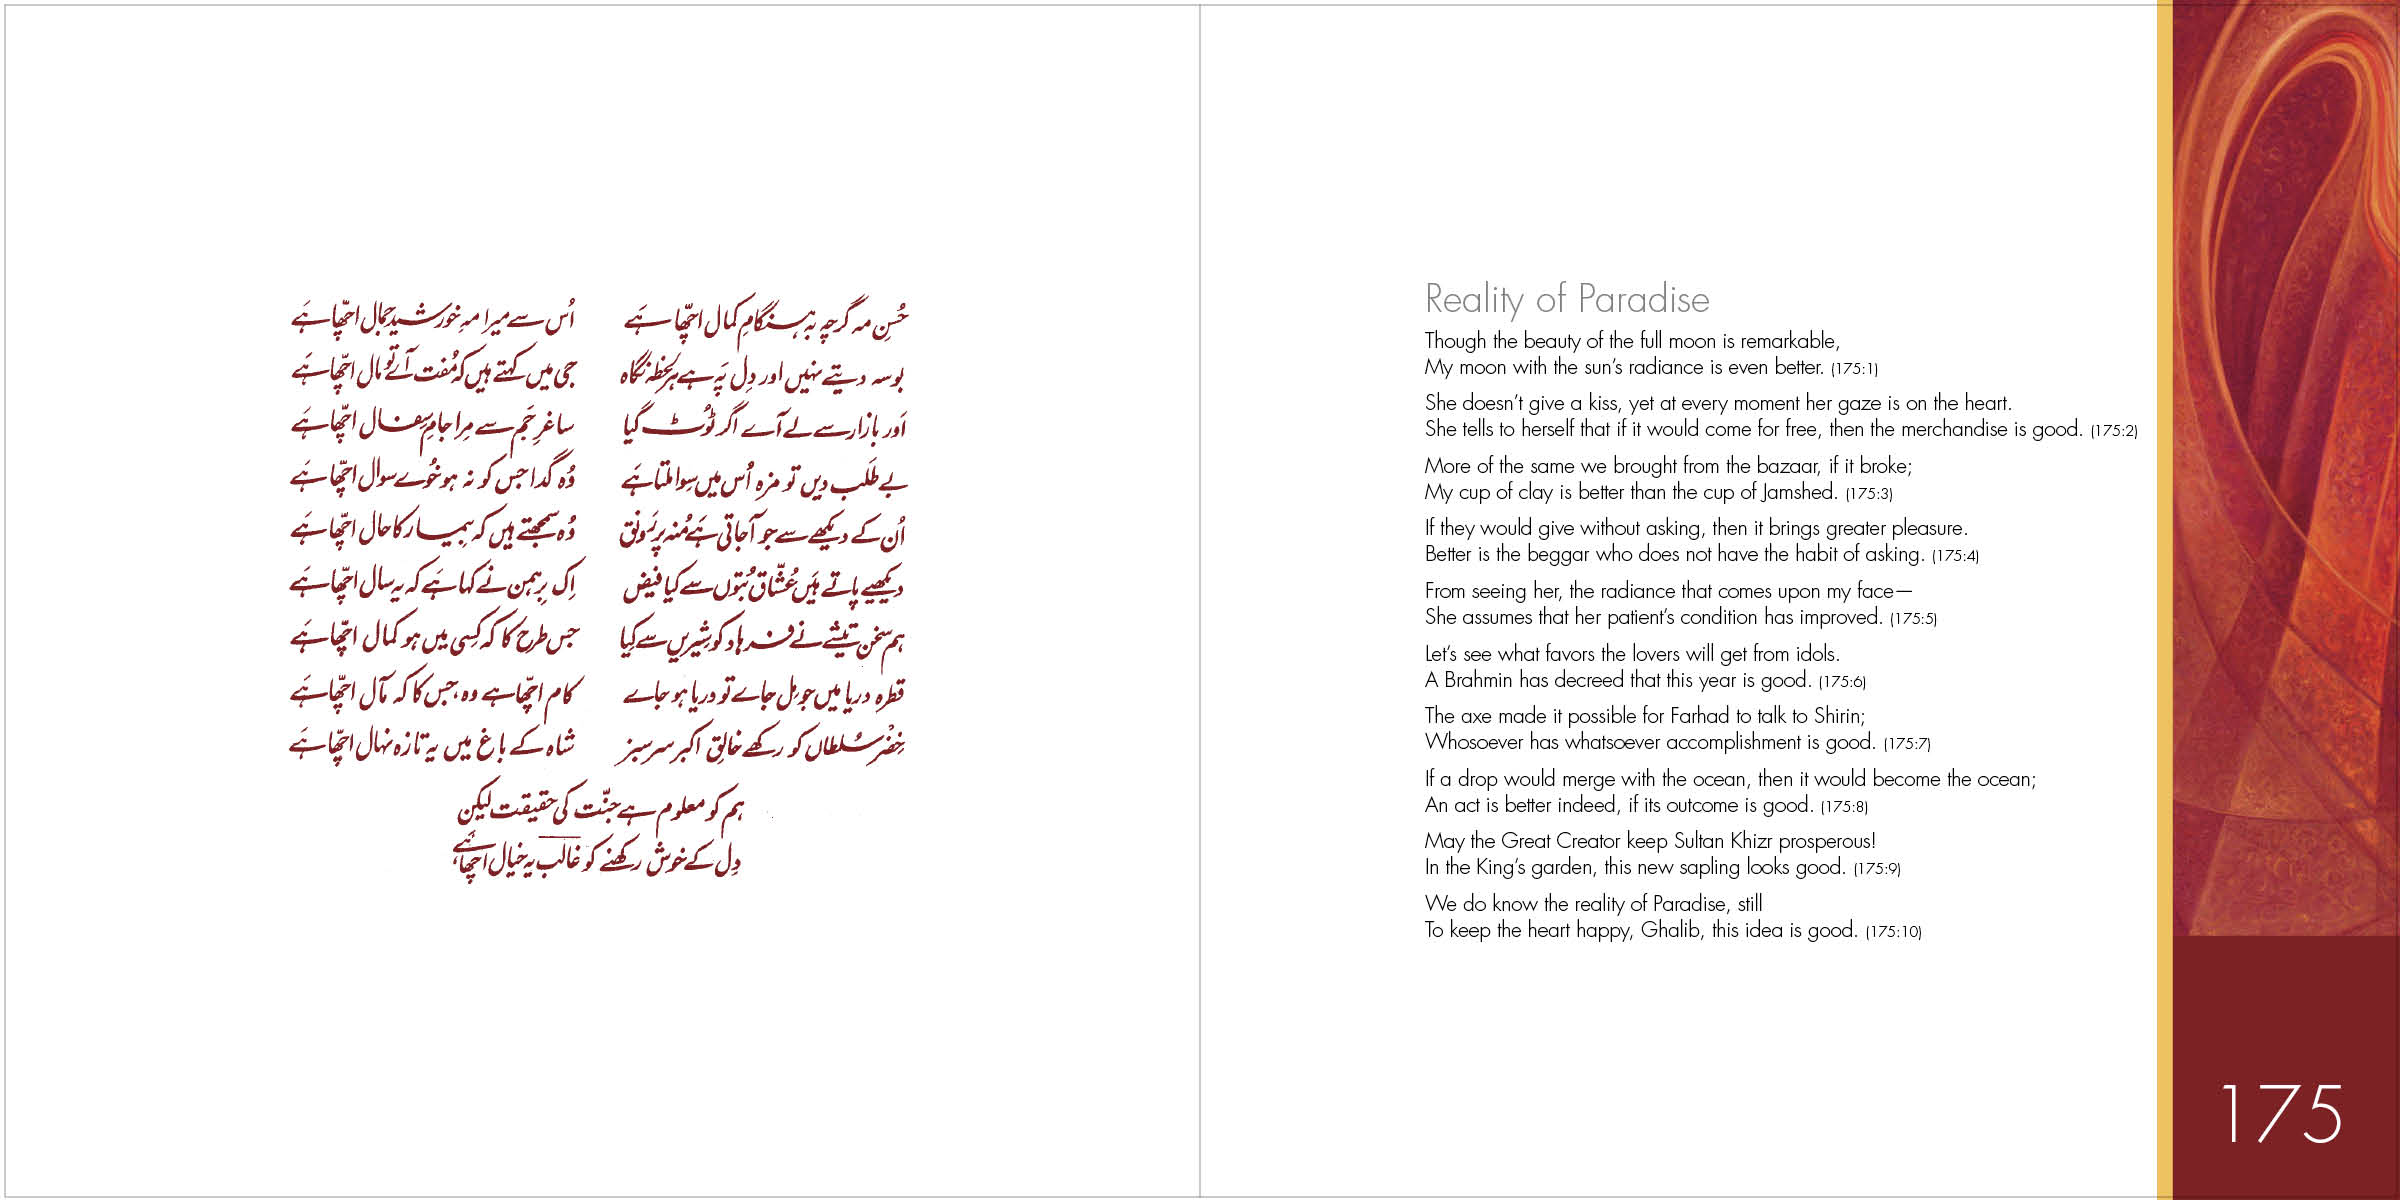 حُسنِ مہ گرچہ بہ ہنگامِ کمال اچّھا ہے
اُس سے میرا مہِ خورشید جمال اچّھا ہے
بوسہ دیتے نہیں اور دِل پَہ ہے ہر لحظہ نگاہ
جی میں کہتے ہیں کہ مُفت آئے تو مال اچّھا ہے
اَور بازار سے لے آے اگر ٹُوٹ گیا
ساغرِ جَم سے مِرا جامِ سِفال اچّھا ہے
بے طَلَب دیں تو مزہ اُس میں سِوا ملتا ہَے
وُہ گدا جس کو نہ ہو خُوے سوال اچّھا ہے
اُن کے دیکھے سے جو آجاتی ہَے مُنہ پر رَونق
وُہ سمجھتے ہیں کہ بیمار کا حال اچّھا ہے
دیکھیے پاتے ہیَں عُشّاق بُتوں سے کیا فیض
اِک برہمن نے کہا ہَے کہ یہ سال اچّھا ہے
ہم سخن تیشے نے فرہاد کو شِیریں سے کِیا
جس طرح کا کہ کِسی میں ہو کمال اچّھا ہے
قطرہ دریا میں جو مِل جاے تو دریا ہو جاے
کام اچّھا ہے وہ جس کا کہ مآل اچّھا ہے
خِضر سُلطاں کو رکھے خالِق اکبر سرسبز
شاہ کے باغ میں یہ تازہ نہال اچّھا ہے
ہم کو معلوم ہے جنّت کی حقیقت لیکن
دِل کے خوش رکھنے کو غالب یہ خیال اچّھا ہے
Reality of Paradise
Though the beauty of the full moon is remarkable,
My moon with the sun’s radiance is even better. (175:1)
She doesn’t give a kiss, yet at every moment her gaze is on the heart.
She tells to herself that if it would come for free, then the merchandise is good. (175:2)
More of the same we brought from the bazaar, if it broke;
My cup of clay is better than the cup of Jamshed. (175:3)
If they would give without asking, then it brings greater pleasure.
Better is the beggar who does not have the habit of asking. (175:4)
From seeing her, the radiance that comes upon my face—
She assumes that her patient’s condition has improved. (175:5)
Let’s see what favors the lovers will get from idols.
A Brahmin has decreed that this year is good. (175:6)
The axe made it possible for Farhad to talk to Shirin;
Whosoever has whatsoever accomplishment is good. (175:7)
If a drop would merge with the ocean, then it would become the ocean;
An act is better indeed, if its outcome is good. (175:8)
May the Great Creator keep Sultan Khizr prosperous!
In the King’s garden, this new sapling looks good. (175:9)
We do know the reality of Paradise, still
To keep the heart happy, Ghalib, this idea is good. (175:10)
175